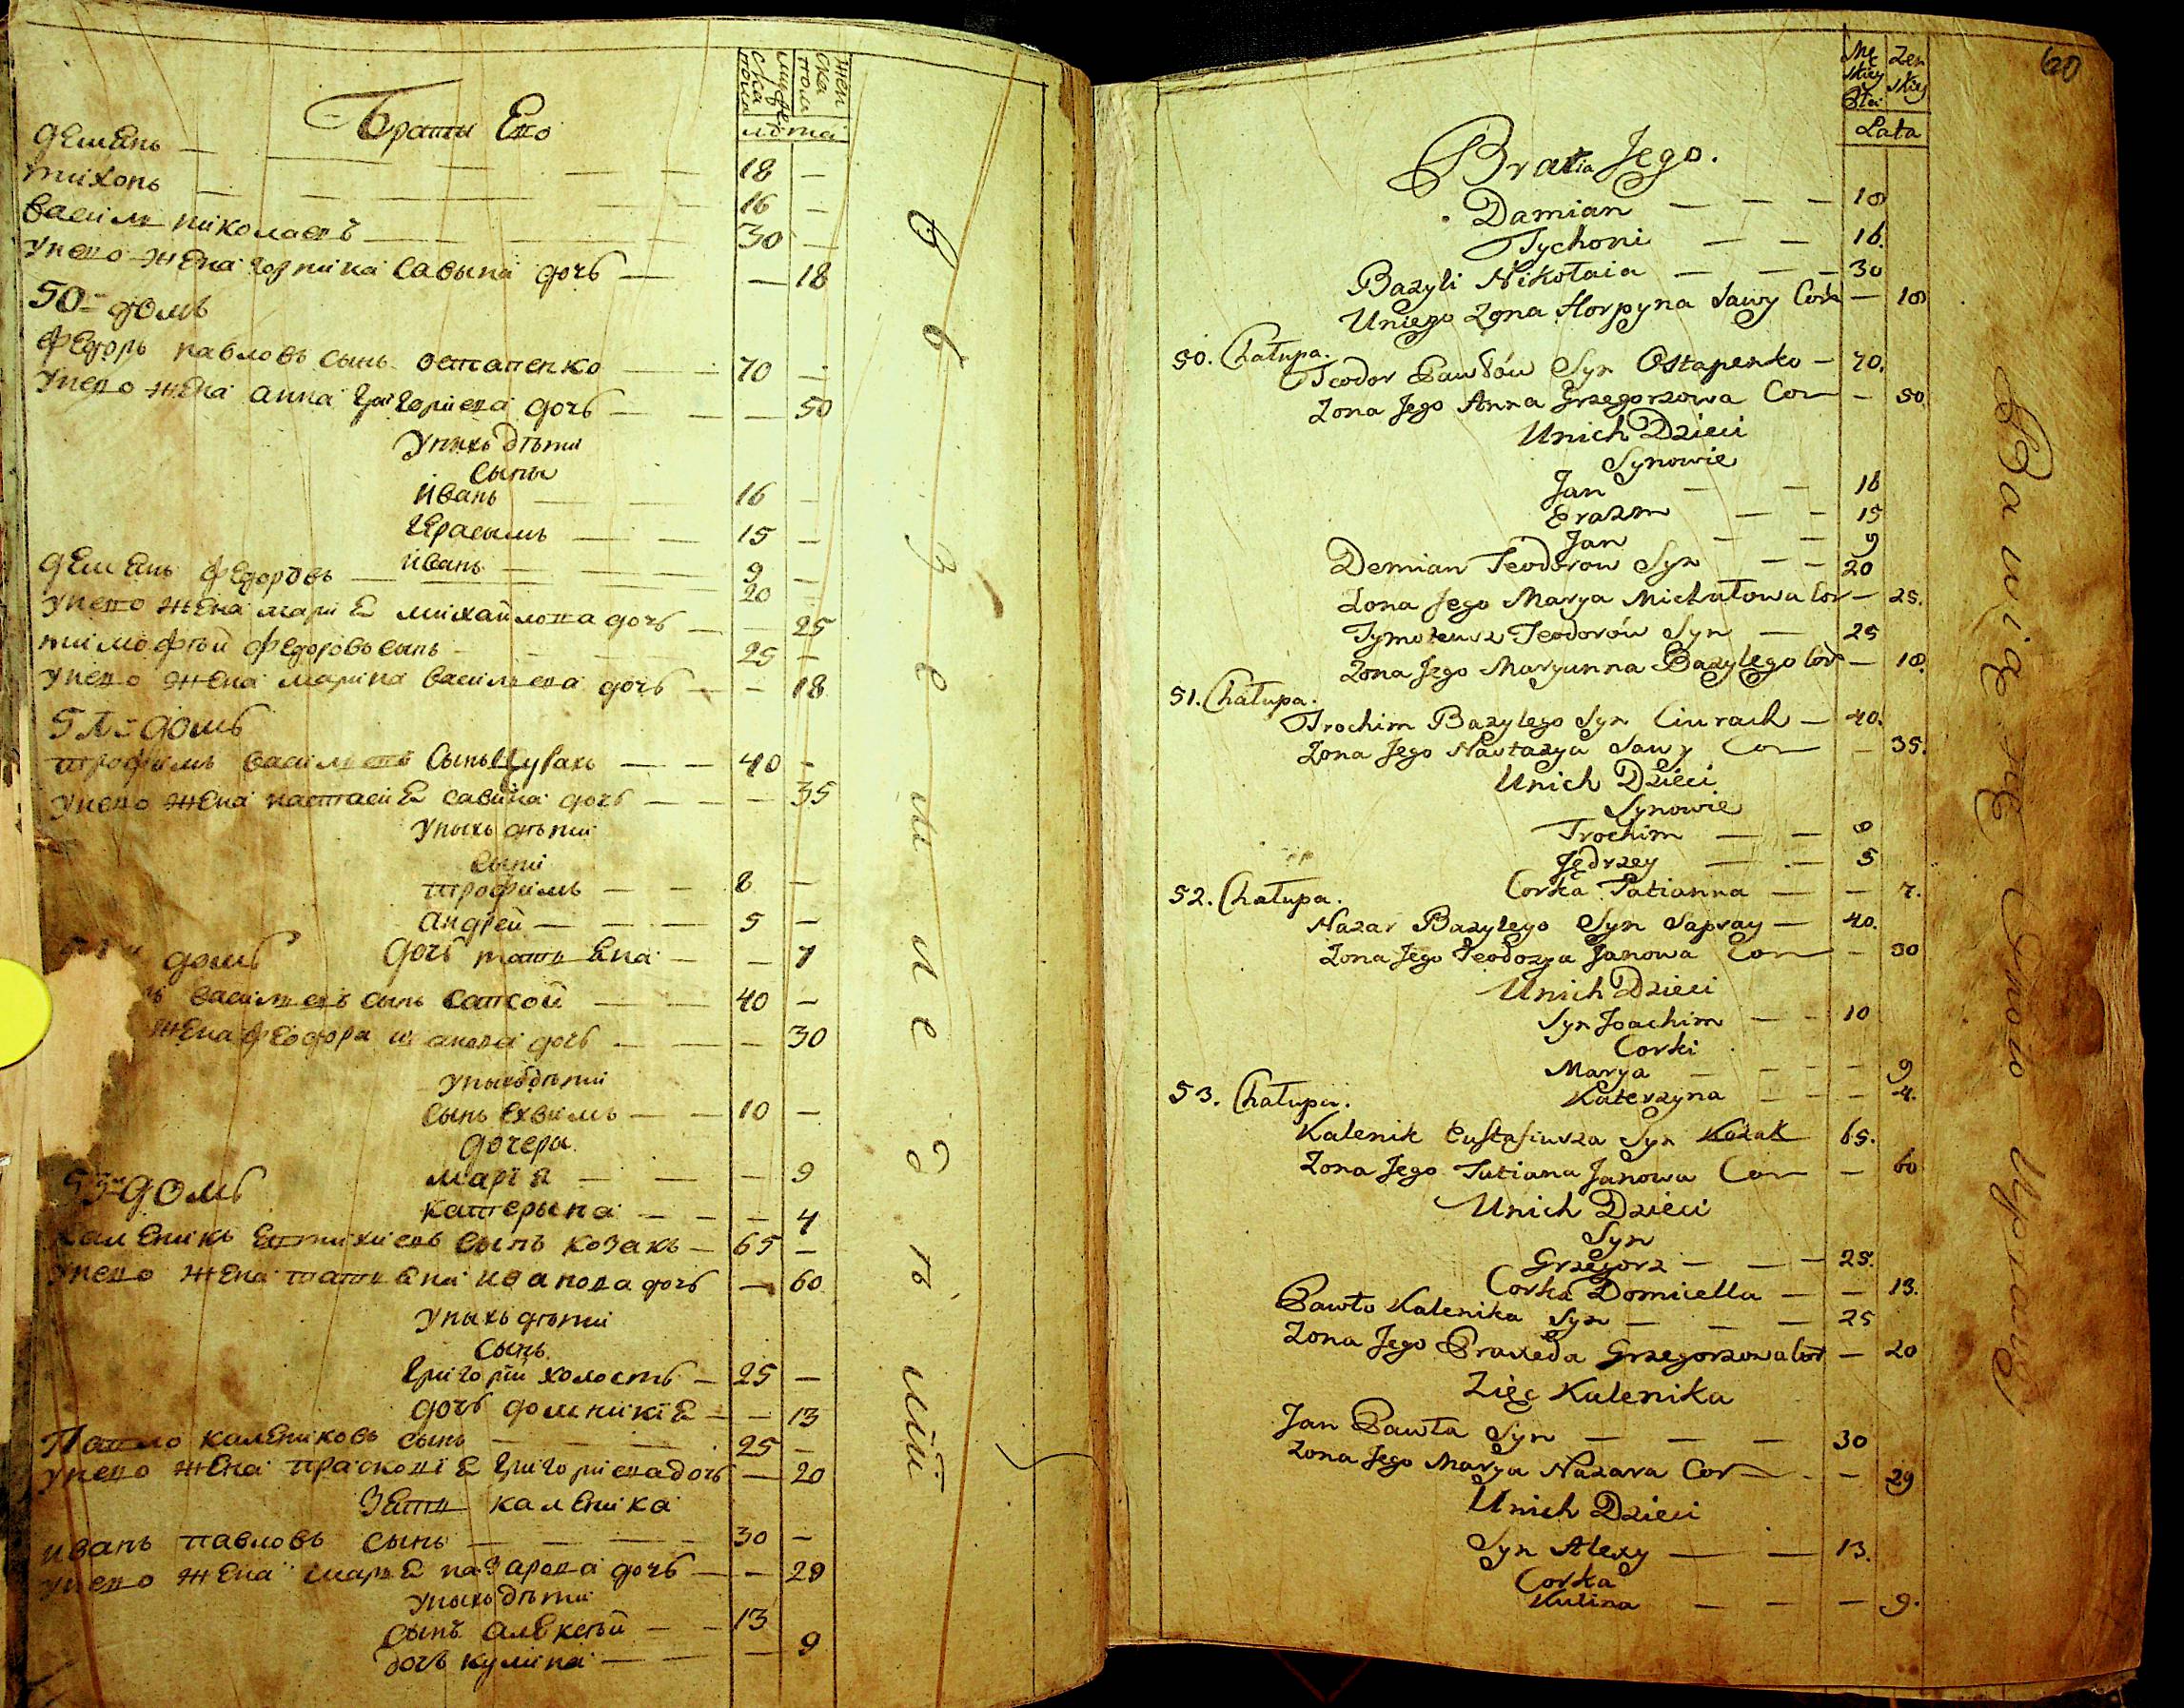 Браты Его
мужеска пола
женска пола
лѣта
Демѣнъ — 18 —
Тихонъ — 16 —
Василь Николаевъ — 30 —
Унего жена Горпина Савына дочь — — 18
50 домъ
Федоръ Павловъ сынъ Остапенко — 70 —
Унего жена Анна Григориева дочь — — 50
Унихъ дѣти
Сыны
Иванъ — 16 —
Герасымъ — 15 —
Иванъ — 9 —
Демѣнъ Федоровъ — 20 —
Унего жена Мария Михайлова дочь — — 25
Тимофѣй Федоровъ сынъ — 25 —
Унего жена Марина Василиева дочь — — 18
домъ
Трофимъ Василиевъ Сынъ — 40 —
Унего жена Настасия Савина дочь — — 35
Уныхъ дѣти
Сыни
Трофимъ — 8 —
Андрей — 5 —
домъ
Дочь Татиана — — 7
Василиевъ сынъ — 40 —
жена Феодора Иванова дочь — — 30
Уныхъ дѣти
Сынъ Ехвимъ — 10 —
Дочеры
Мария — — 9
Катерына — — 4
53 домъ
Каленикъ сынъ Козакъ — 65 —
Унего жена Татиана Иванова дочь — — 60
Уныхъ дѣти
Сынъ
Григорий холостъ — 25 —
Дочь Домникия — — 13
Павло Калениковъ сынъ — 25 —
Унего жена Прасковия Григориева дочь — — 20
Зять Каленика
Иванъ Павловъ сынъ — 30 —
Унего жена Мария Назарова дочь — — 29
Уныхъ дѣти
Сынъ Алексѣй — 13
Дочь Кулина — — 9
60
Męskiey Płci
Zenskiey
Lata
Bratia Jego.
Damian — — — 18
Tychoni — — 16.
Bazyli Nikołaia — — — 30
Uniego Zona Horpyna Sawy Cork — 18
50. Chałupa.
Teodor Pawłów Syn Ostapenko — 70.
Zona Jego Anna Grzegorzowa Cor — 50.
Unich Dzieci
Synowie
Jan — — 16
Erazm — — 15
Jan — — 9
Demian Teodorow Syn — — 20
Zona Jego Marya Michałowa Cor — 25.
Tymoteusz Teodorów Syn — 25
Zona Jego Maryanna Bazylego Cor — 18.
51. Chałupa.
Trochim Bazylego Syn Ciurach — 40.
Zona Jego Nastazya Sawy Cor — 35.
Unich Dzieci
Synowie
Trochim — — 8
Jędrzey — — 5
Corka Tatianna — — 7.
52. Chałupa.
Nazar Bazylego Syn Sapsay — 40.
Zona Jego Teodozya Janowa Cor — 30
Unich Dzieci
Syn Joachim — — 10
Corki
Marya — — — — 9
Katerzyna — — — 4.
53. Chałupa.
Kalenik Eustafiusza Syn Kozak 65.
Zona Jego Tatiana Janowa Cor — 60
Unich Dzieci
Syn
Grzegorz — — — 25.
Corka Domicella — — 13.
Pawło Kalenika Syn — — — 25
Zona Jego Praxeda Grzegorzowa Cor — 20
Zięc Kalenika
Jan Pawła Syn — — — 30
Zona Jego Marya Nazara Cor — — 29
Unich Dzieci
Syn Alexy — — 13.
Corka
Kulina — — — 9.